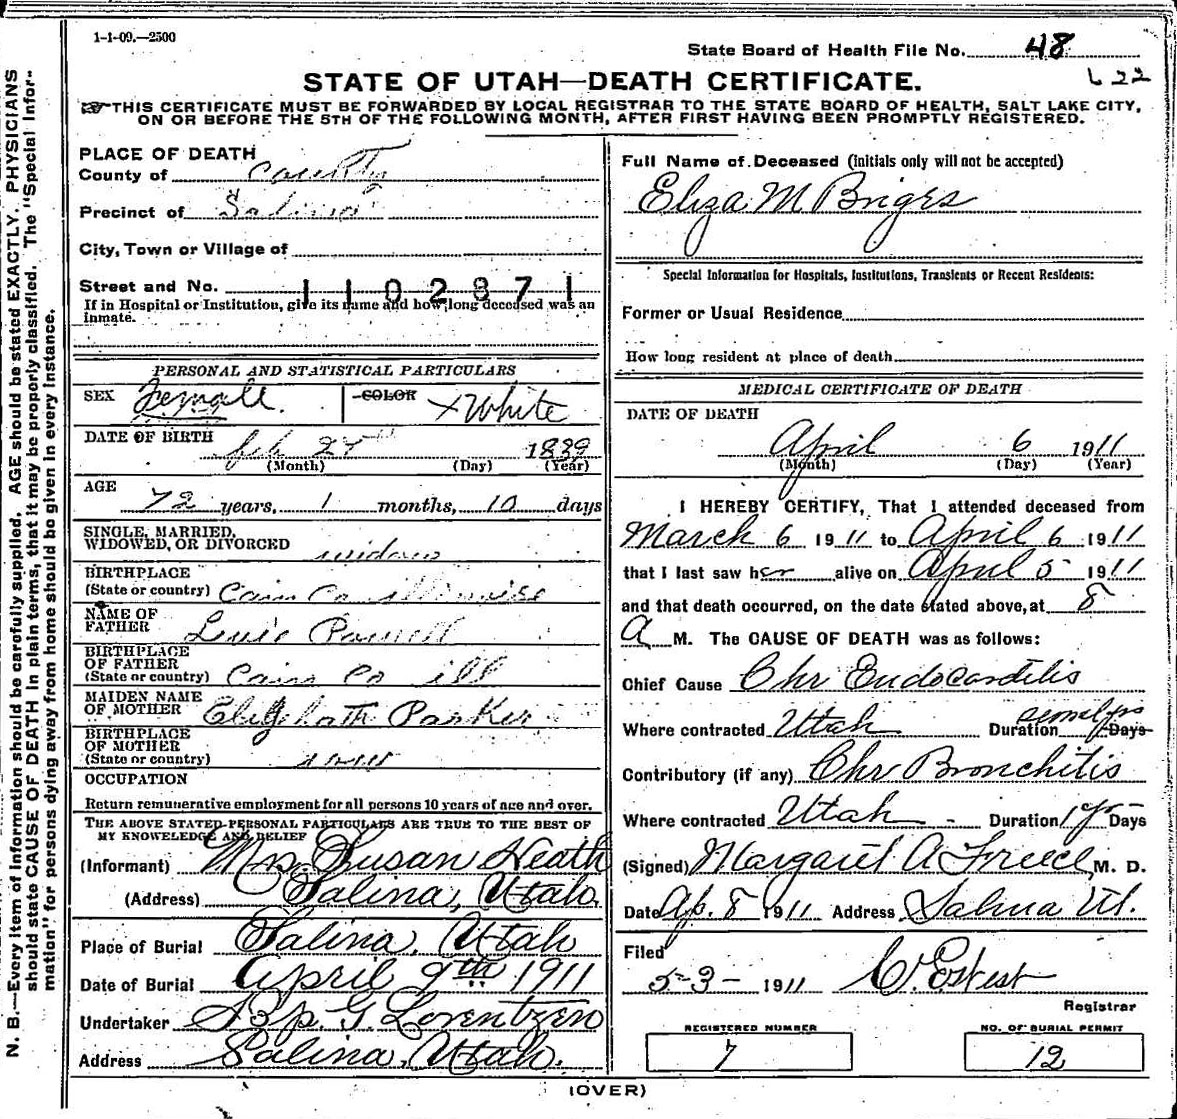 1-1-09.—2500
State Board of Health File No. 48
622
STATE OF UTAH—DEATH CERTIFICATE.
THIS CERTIFICATE MUST BE FORWARDED BY LOCAL REGISTRAR TO THE STATE BOARD OF HEALTH, SALT LAKE CITY,
ON OR BEFORE THE 5TH OF THE FOLLOWING MONTH, AFTER FIRST HAVING BEEN PROMPTLY REGISTERED.
N. B.—Every item of information should be carefully supplied. AGE should be stated EXACTLY. PHYSICIANS
should state CAUSE OF DEATH in plain terms, that it may be properly classified. The "Special Infor-
mation" for persons dying away from home should be given in every instance.
PLACE OF DEATH
County of County
Precinct of Salina
City, Town or Village of
Street and No. 1102871
If in Hospital or Institution, give its name and how long deceased was an
inmate.
PERSONAL AND STATISTICAL PARTICULARS
SEX Female COLOR x White
DATE OF BIRTH Feb 1839
(Month) (Day) (Year)
AGE
72 years, 1 months, 10 days
SINGLE, MARRIED,
WIDOWED, OR DIVORCED widow
BIRTHPLACE
(State or country) Co
NAME OF
FATHER
BIRTHPLACE
OF FATHER
(State or country) Co ill
MAIDEN NAME
OF MOTHER Elizebath Parker
BIRTHPLACE
OF MOTHER
(State or country)
OCCUPATION
Return remunerative employment for all persons 10 years of age and over.
THE ABOVE STATED PERSONAL PARTICULARS ARE TRUE TO THE BEST OF
MY KNOWLEDGE AND BELIEF
(Informant) Mrs Susan Heath
(Address) Salina, Utah.
Place of Burial Salina, Utah
Date of Burial April 9th 1911
Undertaker G. Lorentzen
Address Salina, Utah.
Full Name of Deceased (Initials only will not be accepted)
Eliza M Briggs
Special Information for Hospitals, Institutions, Transients or Recent Residents:
Former or Usual Residence
How long resident at place of death
MEDICAL CERTIFICATE OF DEATH
DATE OF DEATH
April 6 1911
(Month) (Day) (Year)
I HEREBY CERTIFY, That I attended deceased from
March 6 1911 to April 6 1911
that I last saw her alive on April 5 1911
and that death occurred, on the date stated above, at 8
A M. The CAUSE OF DEATH was as follows:
Chief Cause Chr Endocarditis
Where contracted Utah Duration Days
Contributory (if any) Chr Bronchitis
Where contracted Utah Duration Days
(Signed) Margaret A Freece, M. D.
Date Ap. 8 1911 Address Salina Ut.
Filed
5-3- 1911
Registrar
REGISTERED NUMBER
7
NO. OF BURIAL PERMIT
12
(OVER)